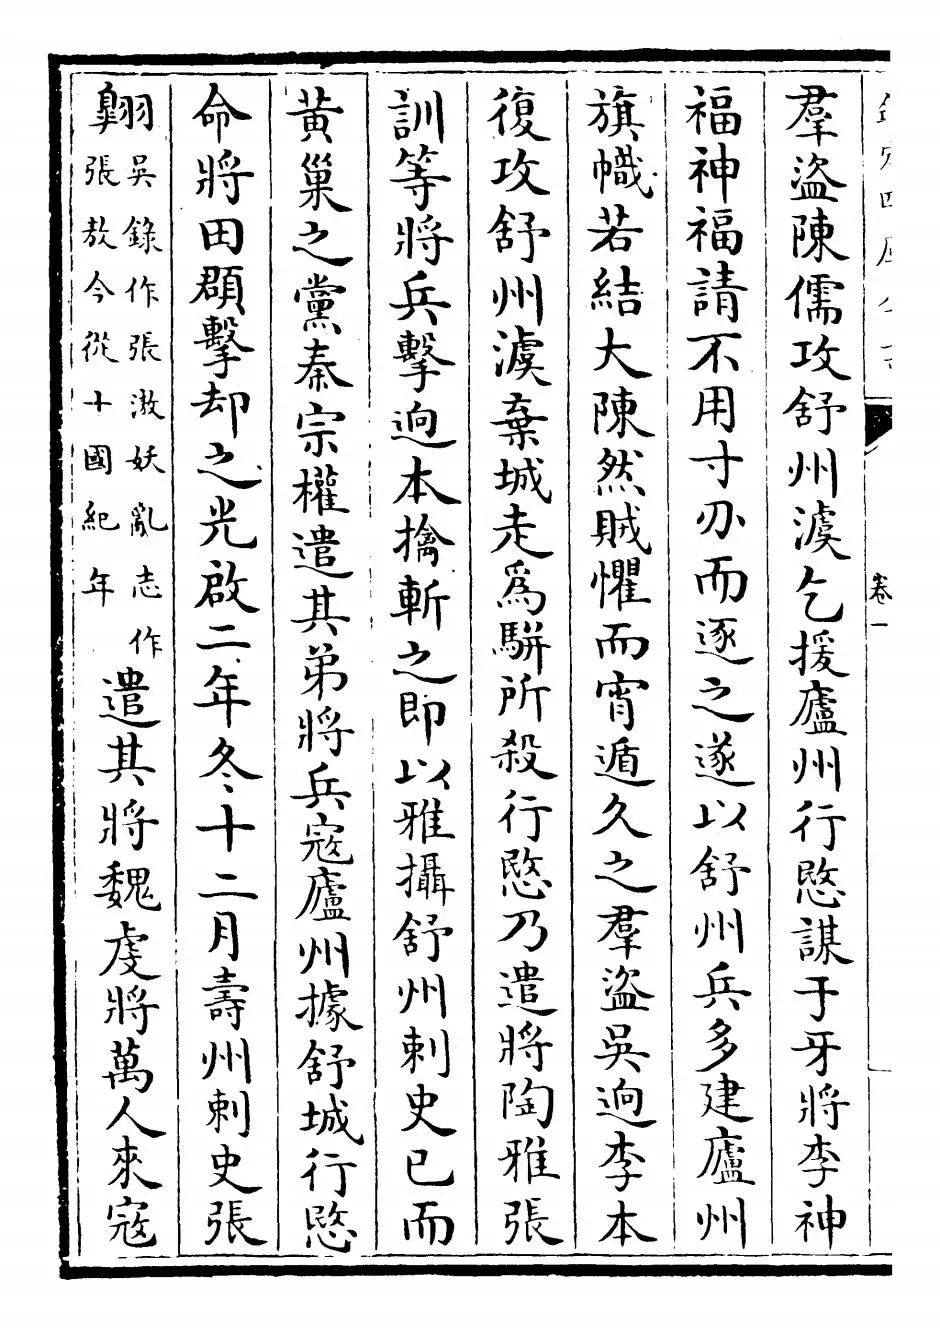 卷一
羣盜陳儒攻舒州澞乞援廬州行愍謀于牙將李神
福神福請不用寸刃而逐之遂以舒州兵多建廬州
旗幟若結大陳然賊懼而宵遁久之羣盜吳逈李本
復攻舒州澞棄城走為駢所殺行愍乃遣將陶雅張
訓等將兵擊逈本擒斬之即以雅攝舒州刺史已而
黄巢之黨秦宗權遣其弟將兵宼廬州據舒城行愍
命將田頵擊却之光啟二年冬十二月壽州刺史張
翺
吳錄作張漵妖亂志作
張敖今從十國紀年
遣其將魏虔將萬人來宼